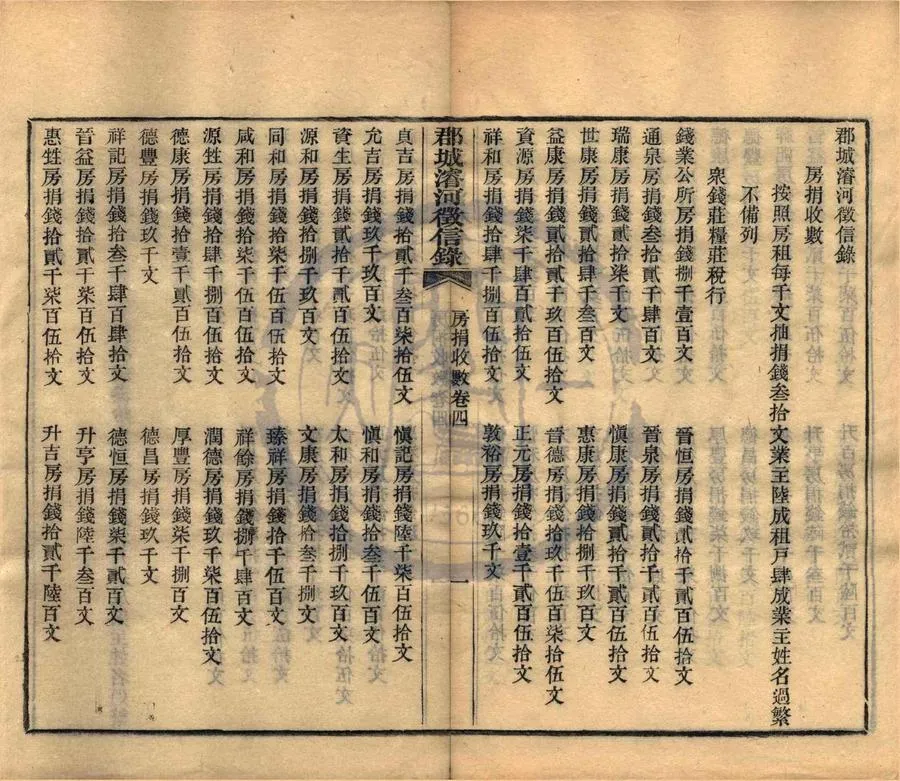 郡城濬河徵信錄
房捐收數
按照房租每千文抽捐錢叁拾文業主陸成租戶肆成業主姓名過繁
不備列
衆錢莊糧莊稅行
錢業公所房捐錢捌千壹百文 晉恒房捐錢貳拾千貳百伍拾文
通泉房捐錢叁拾貳千肆百文 晉泉房捐錢貳拾千貳百伍拾文
瑞康房捐錢貳拾柒千文 愼康房捐錢貳拾千貳百伍拾文
世康房捐錢貳拾肆千叁百文 惠康房捐錢拾捌千玖百文
益康房捐錢貳拾貳千玖百伍拾文 晉德房捐錢拾伍千伍百柒拾伍文
資源房捐錢柒千肆百貳拾伍文 正元房捐錢拾壹千貳百伍拾文
祥和房捐錢拾肆千捌百伍拾文 敦裕房捐錢玖千文
郡城濬河徵信錄 房捐收數卷四 一
貞吉房捐錢拾貳千叁百柒拾伍文 愼記房捐錢陸千柒百伍拾文
允吉房捐錢玖千玖百文 愼和房捐錢拾叁千伍百文
資生房捐錢貳拾千貳百伍拾文 太和房捐錢拾捌千玖百文
源和房捐錢拾捌千玖百文 文康房捐錢拾叁千捌文
同和房捐錢拾柒千伍百伍拾文 臻祥房捐錢拾千伍百文
咸和房捐錢拾柒千伍百伍拾文 祥餘房捐錢捌千肆百文
源甡房捐錢拾肆千捌百伍拾文 潤德房捐錢玖千柒百伍拾文
德康房捐錢拾壹千貳百伍拾文 厚豐房捐錢柒千捌百文
德豐房捐錢玖千文 德昌房捐錢玖千文
祥記房捐錢拾叁千肆百肆拾文 德恒房捐錢柒千貳百文
晉益房捐錢拾貳千柒百伍拾文 升亨房捐錢陸千叁百文
惠甡房捐錢拾貳千柒百伍拾文 升吉房捐錢拾貳千陸百文